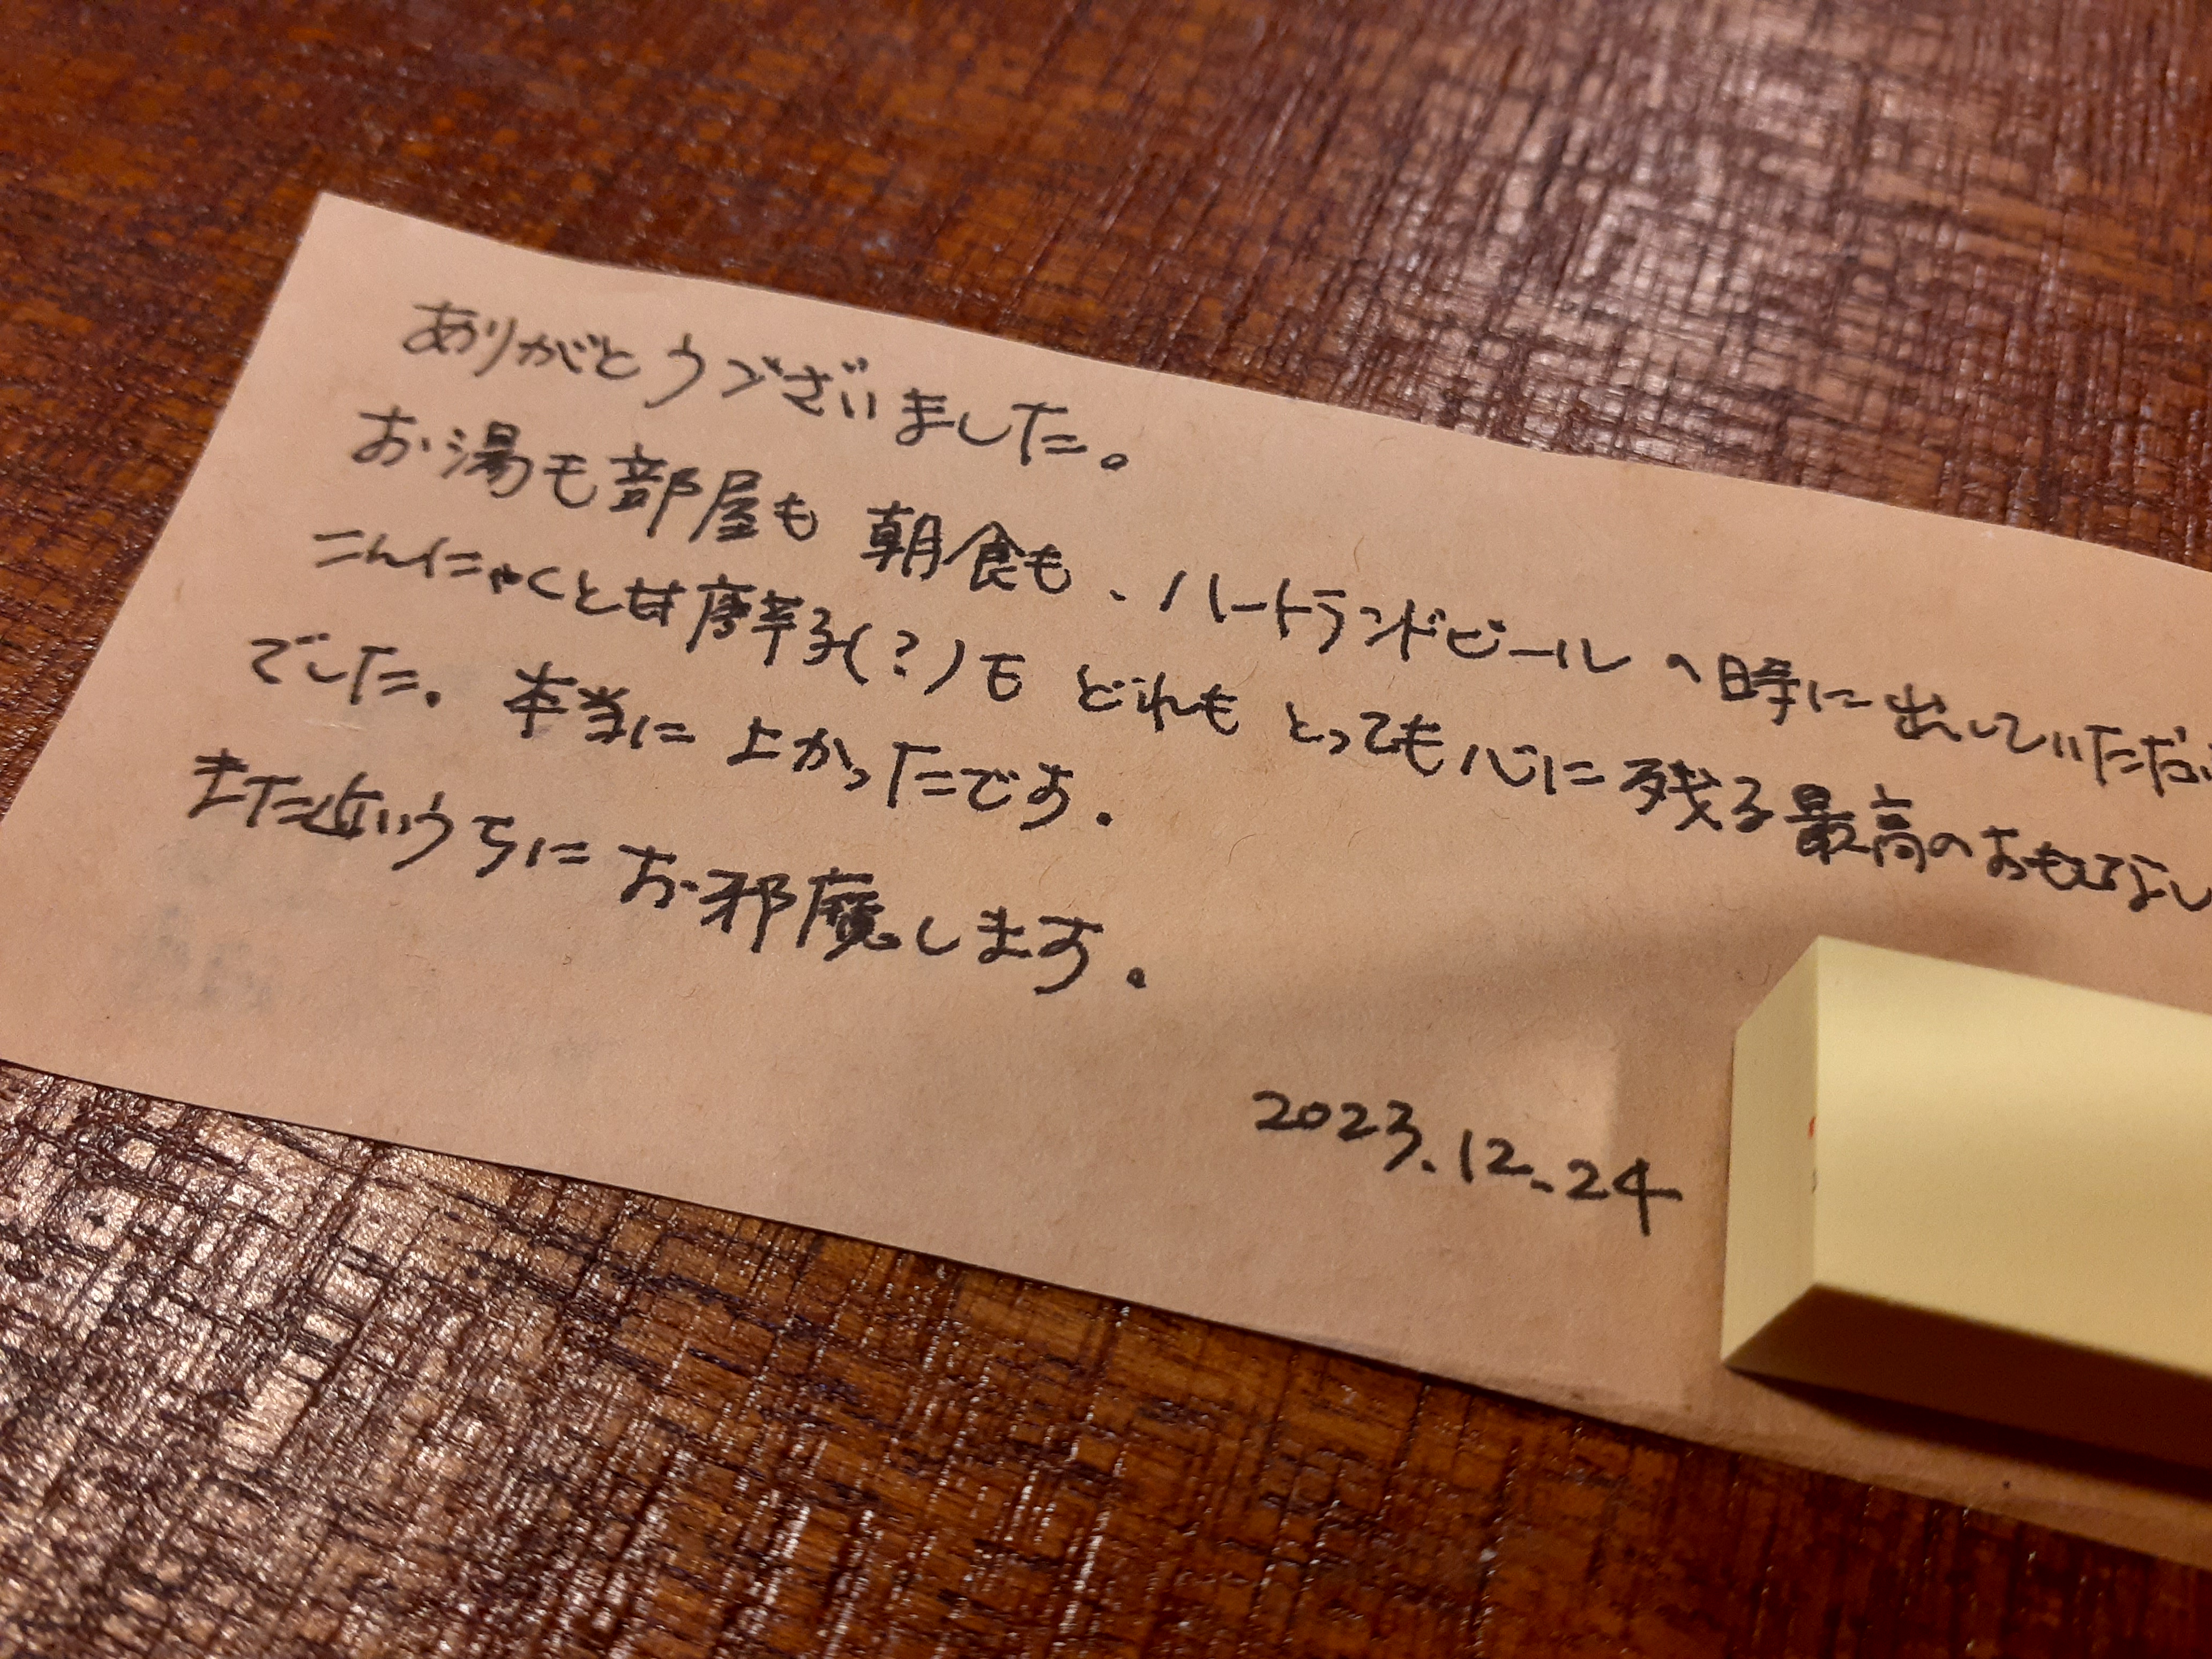 ありがとうございました。
お湯も部屋も朝食も、ハートランドビールの時に出していただい
こんにゃくと甘唐辛子(?)もどれもとっても心に残る最高のおもてなし
でした。本当に上かったです。
また近いうちにお邪魔します。
2023.12.24